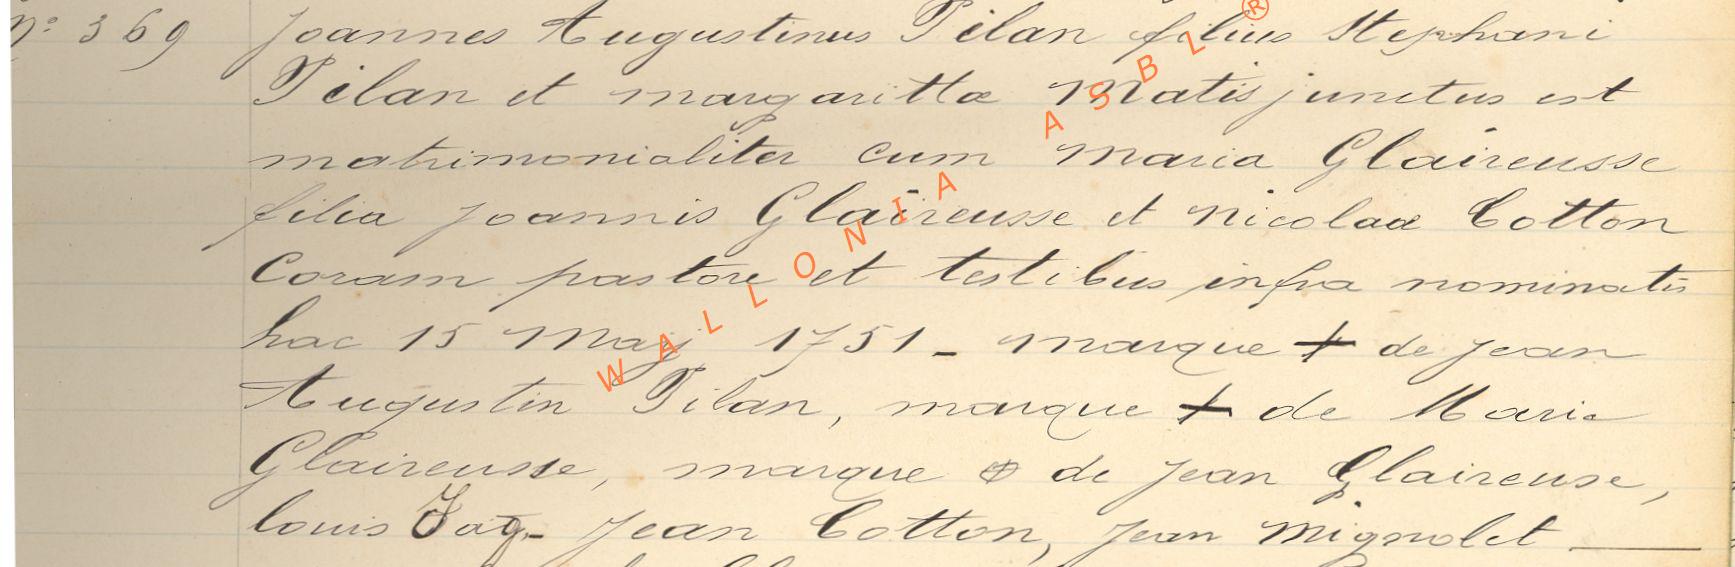 N: 369 Joannes Augustinus Pilan filius Stephani
Pilan et margarittæ Matis junctus est
matrimonialiter cum maria Glaireusse
filia Joannis Glaireusse et Nicolaæ Cotton
Coram pastore et testibus infra nominatis
hac 15 Maij 1751 _ marque + de Jean
Augustin Pilan, marque + de Marie
Glaireusse, marque de Jean Glaireuse,
louis Jean Cotton, Jean Mignolet
WALLONIA ASBL ®